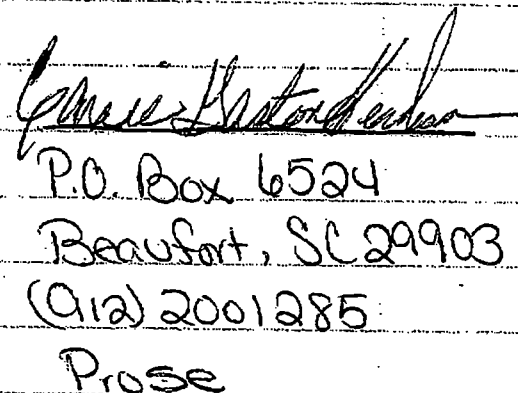 Gaston
P.O. Box 6524
Beaufort, SC 29903
(912) 2001285
Prose